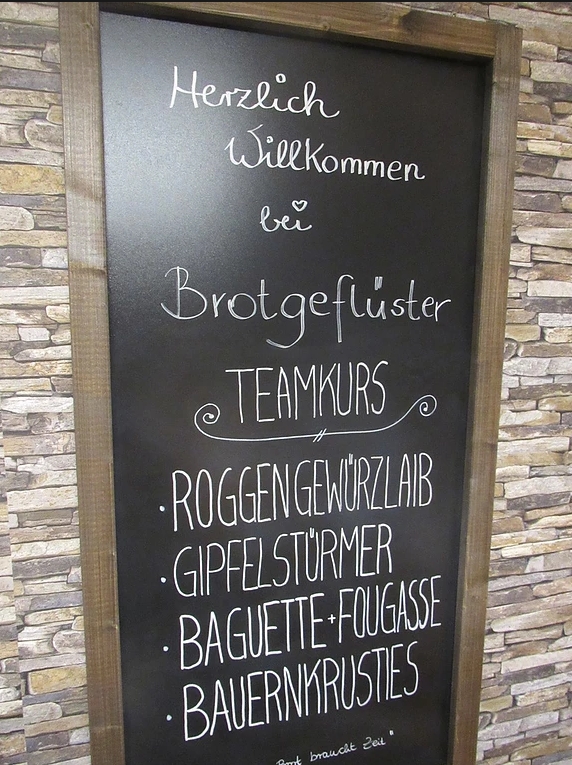 Herzlich
Willkommen
bei
Brotgeflüster
TEAMKURS
• ROGGENGEWÜRZLAIB
• GIPFELSTÜRMER
• BAGUETTE + FOUGASSE
• BAUERNKRUSTIES
Brot braucht Zeit"